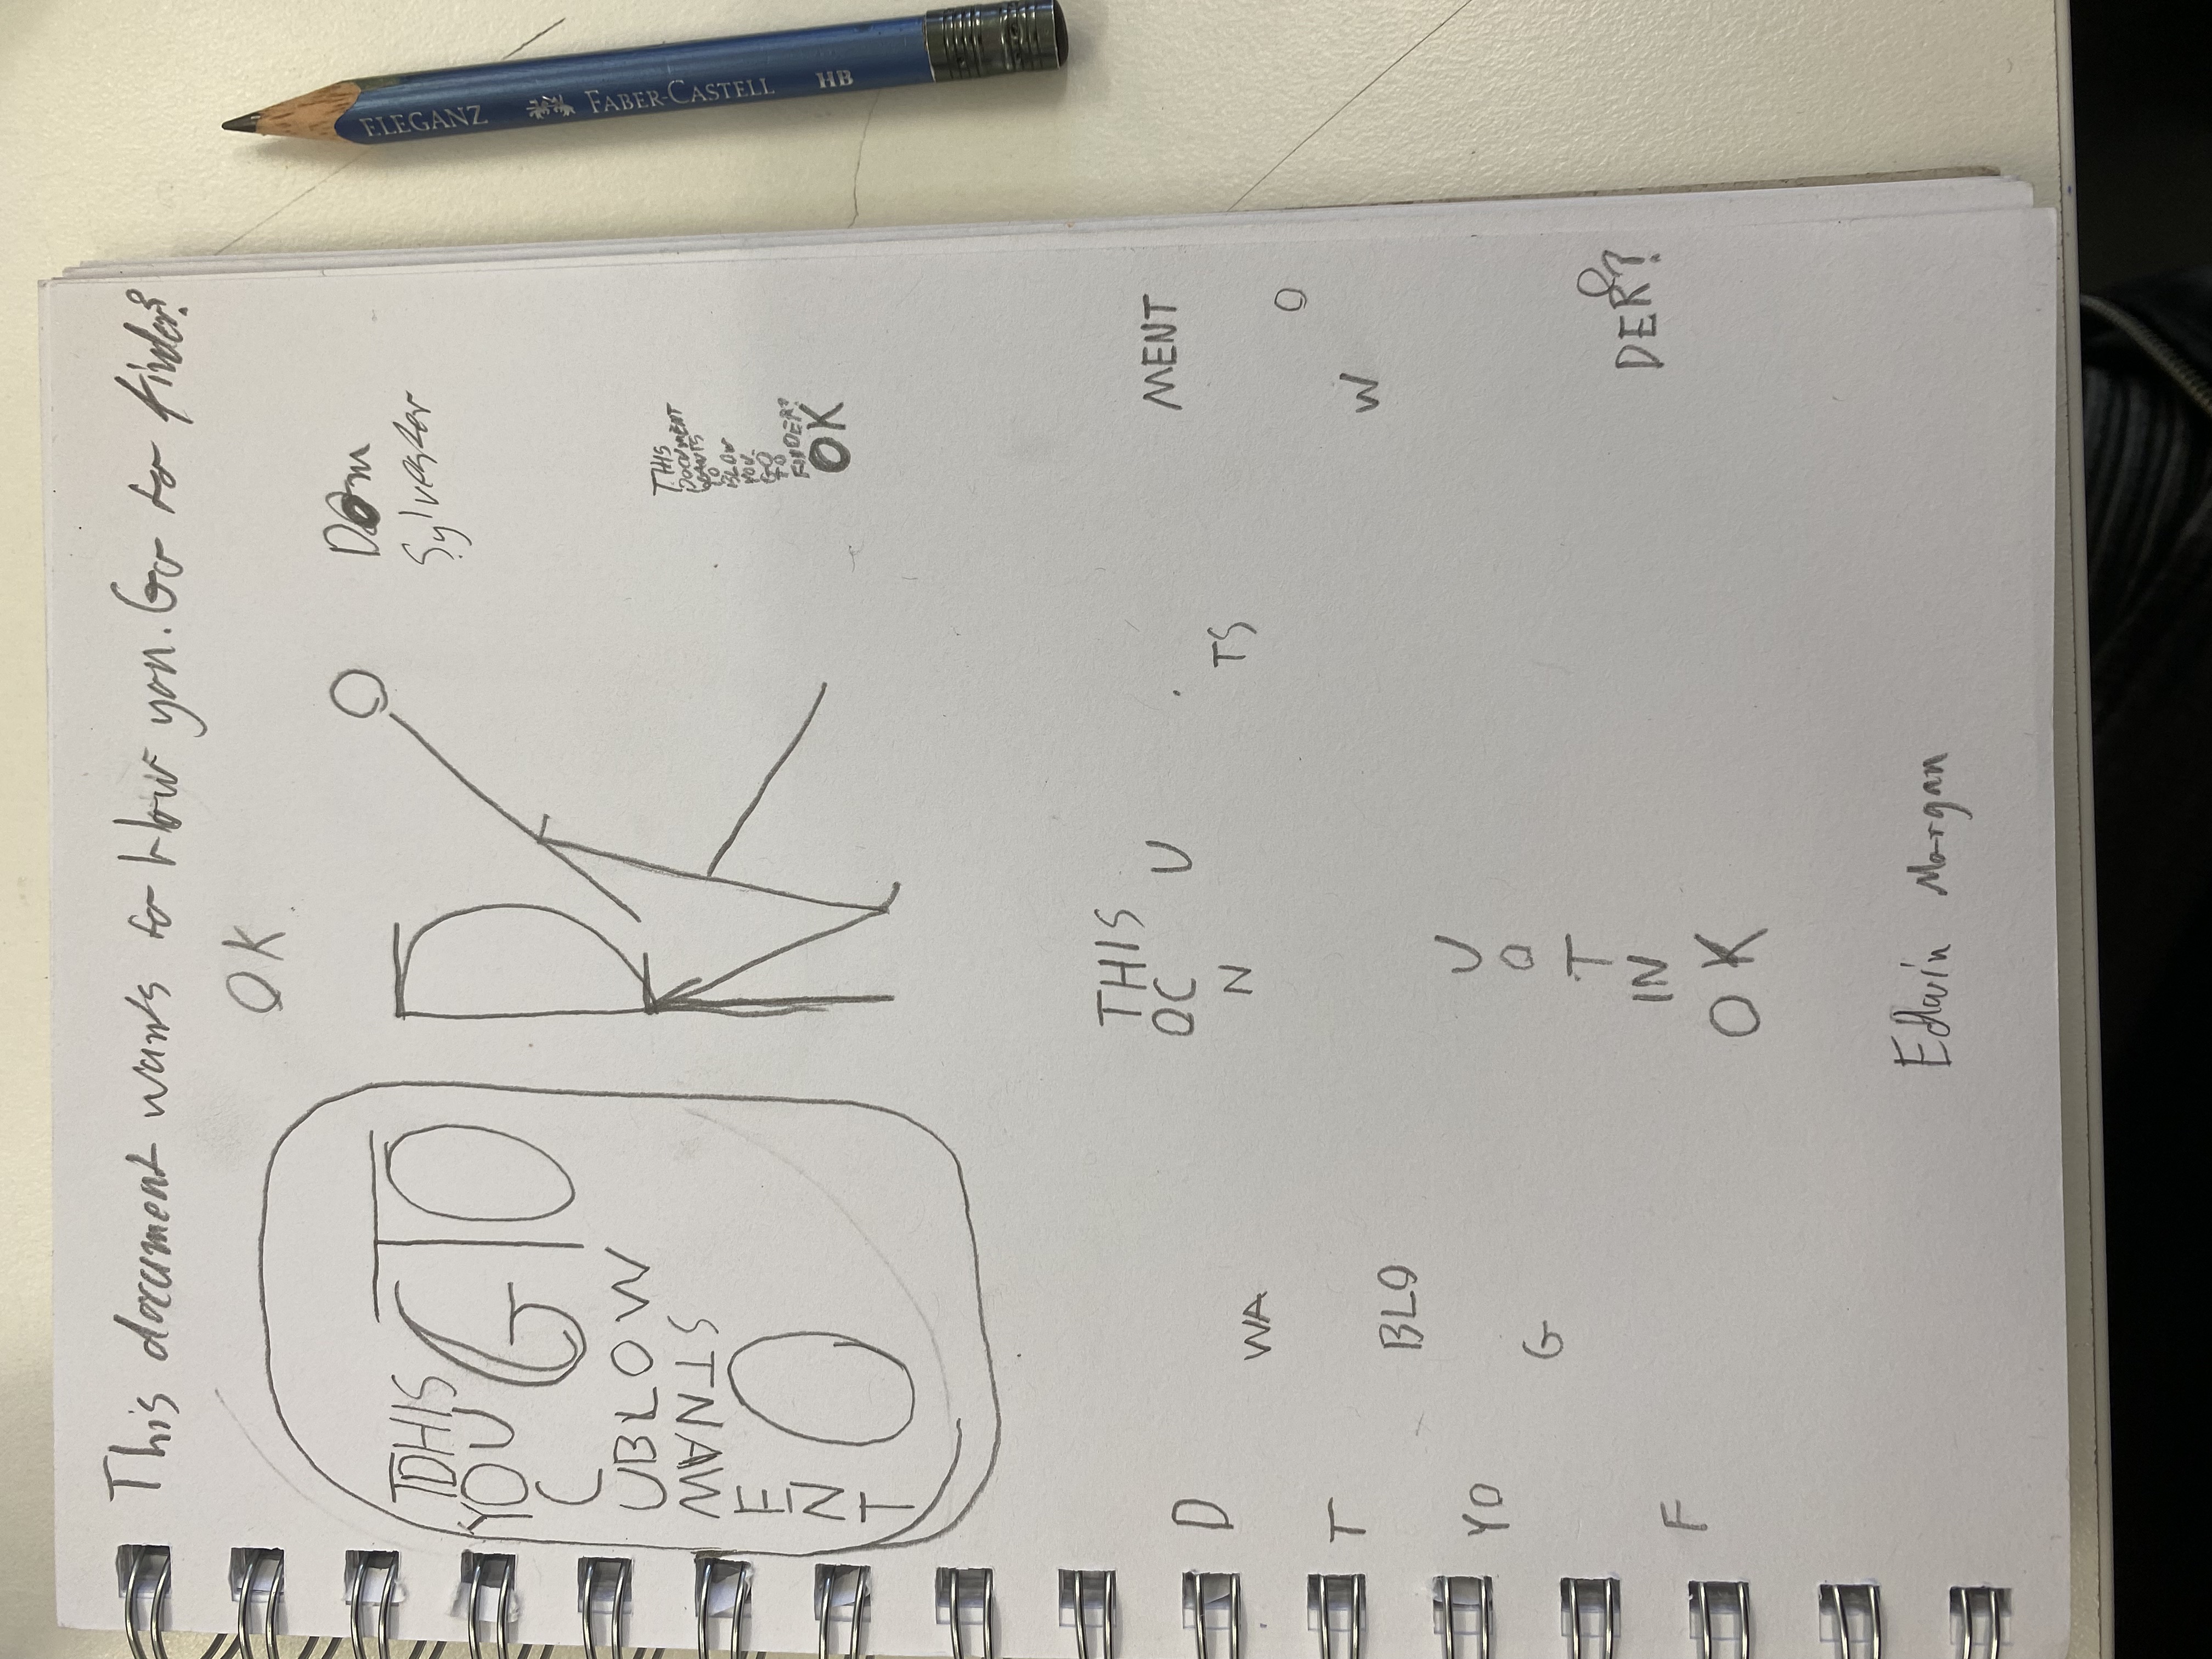 This document wants to blow you. Go to finder?
OK
TDHIS
GTO
YOU
C
UBLOW
WANTS
E
N
T
O
Dom
Sylvester
THIS
DOCUMENT
WANTS
TO
BLOW
YOU.
GO
TO
FINDER?
OK
THIS
D
OC U MENT
WA N TS
T O
BLO W
YO U
G O
T O
F IN DER?
OK
Edwin Morgan
ELEGANZ FABER-CASTELL HB